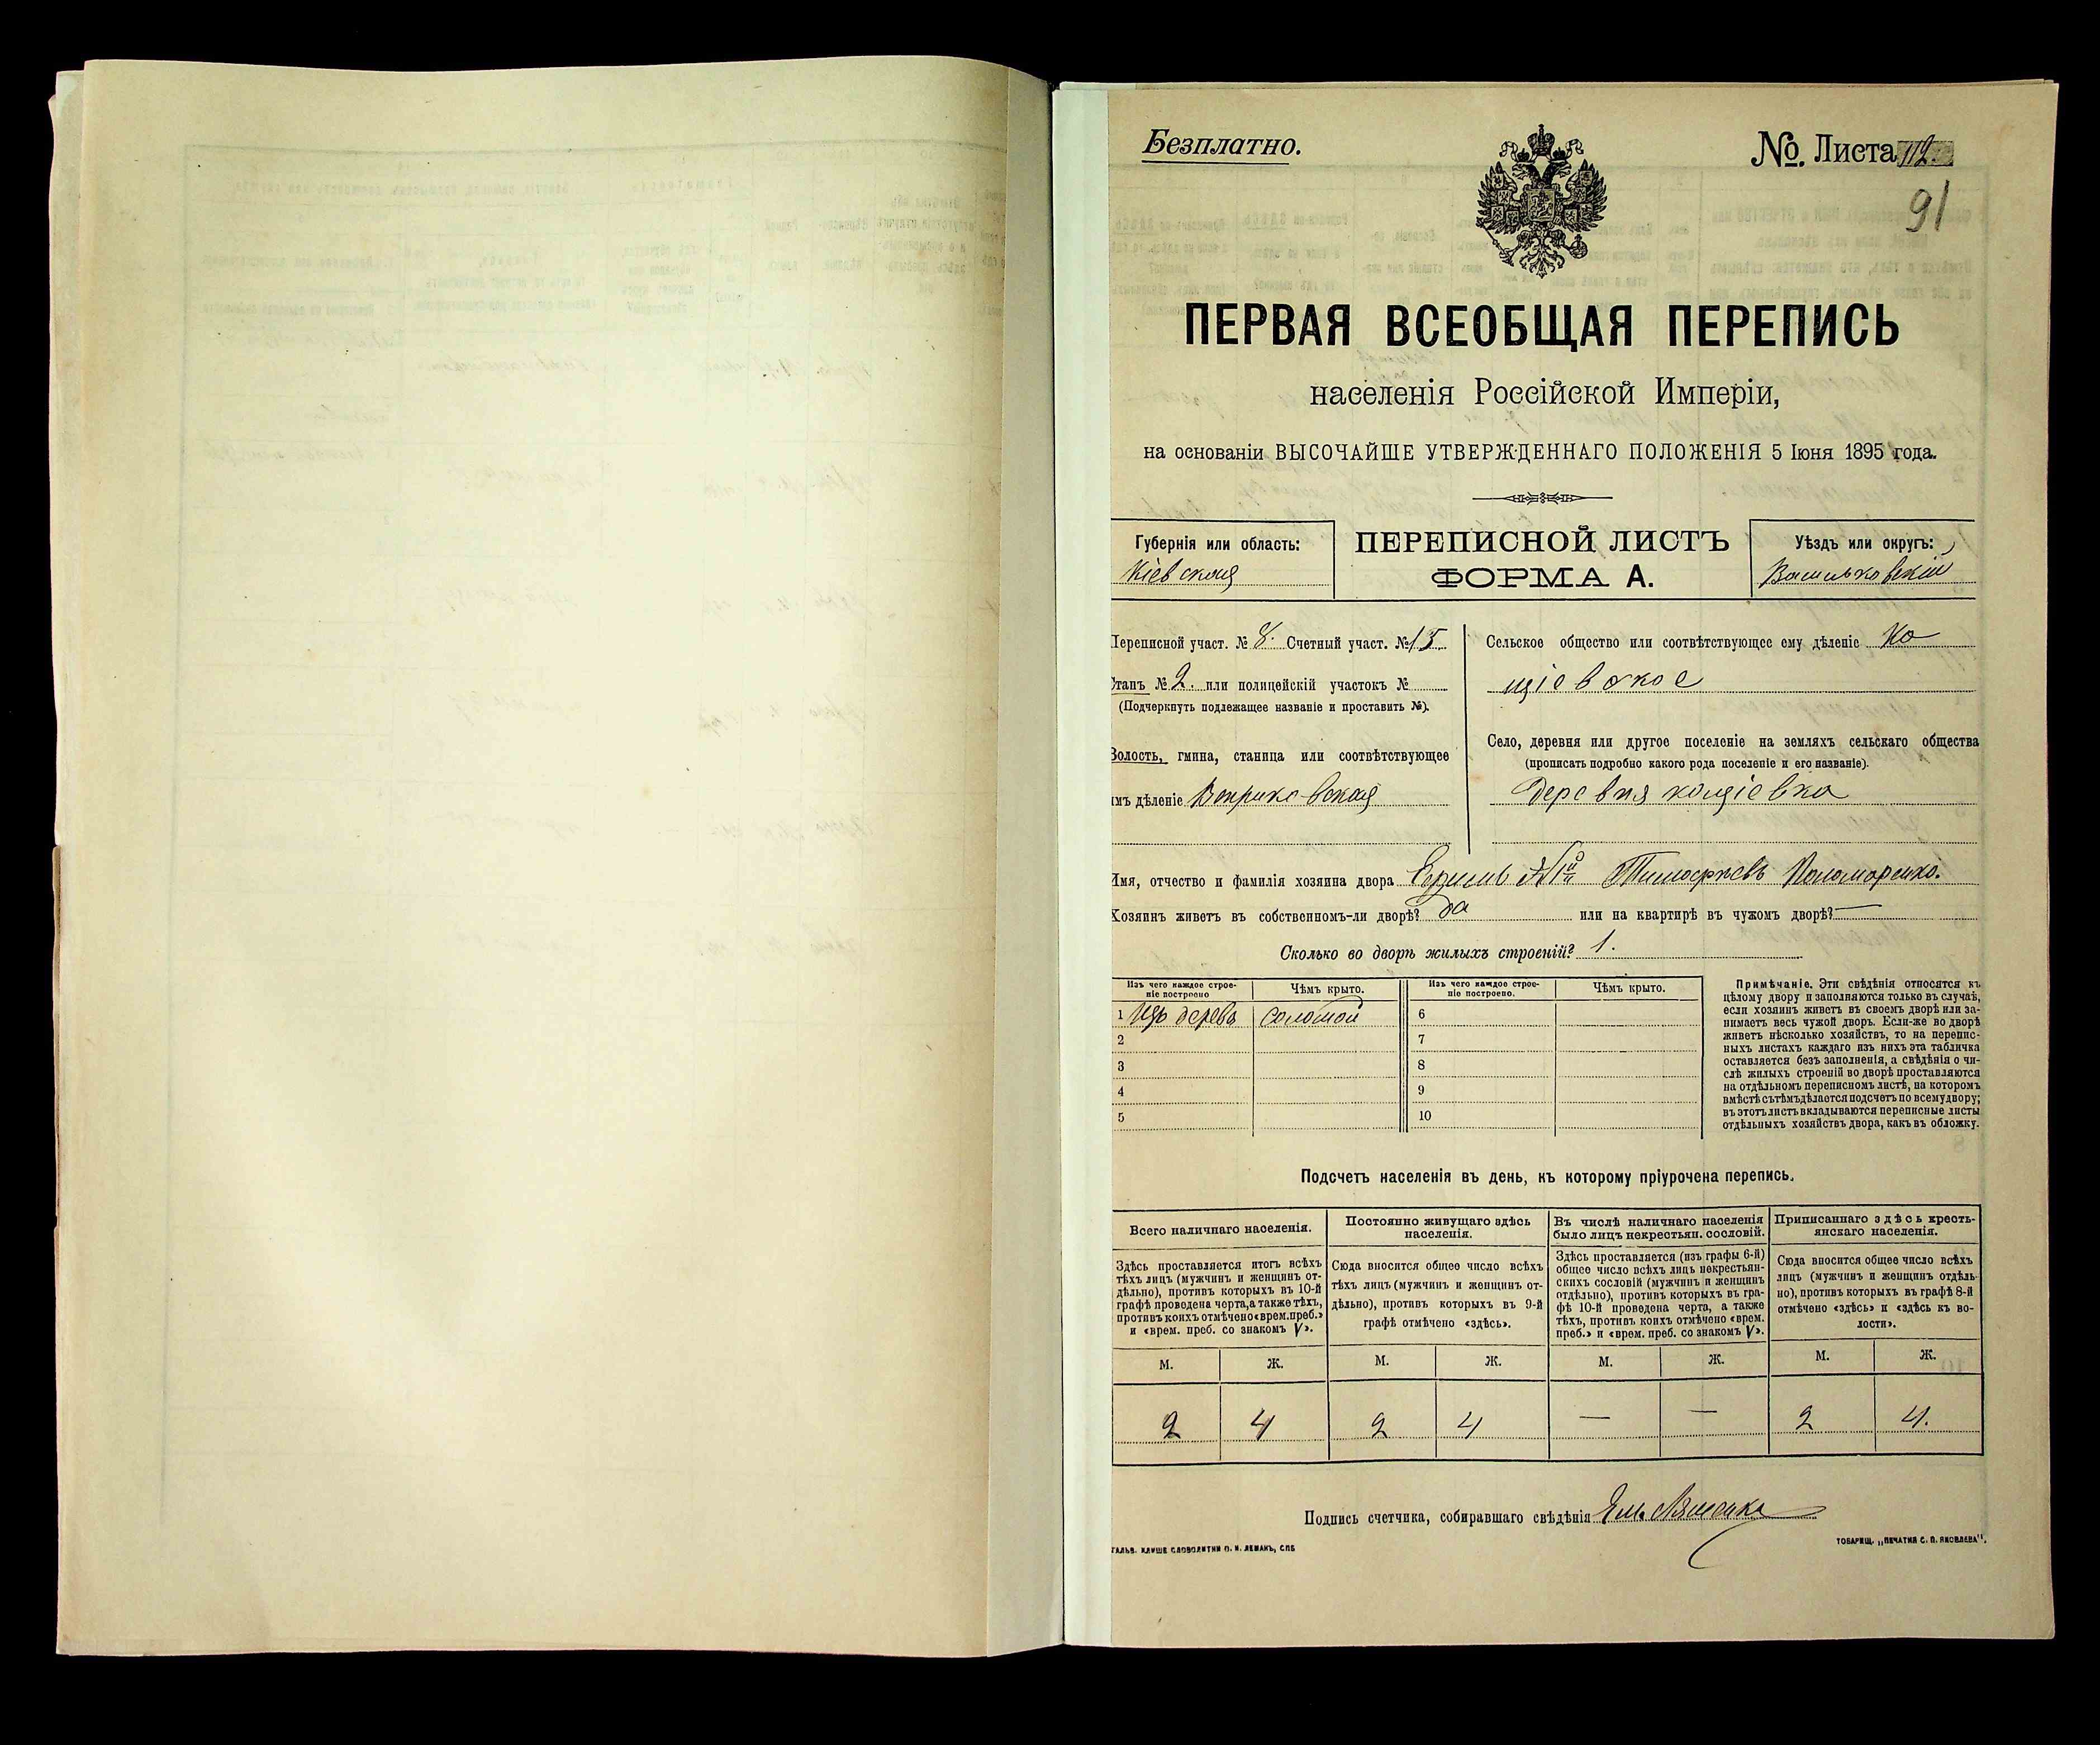 Безплатно.
№. Листа 112.
91
ПЕРВАЯ ВСЕОБЩАЯ ПЕРЕПИСЬ
населенія Россійской Имперіи,
на основаніи ВЫСОЧАЙШЕ УТВЕРЖДЕННАГО ПОЛОЖЕНІЯ 5 Іюня 1895 года.
Губернія или область:
Кіевская
ПЕРЕПИСНОЙ ЛИСТЪ
ФОРМА А.
Уѣздъ или округъ:
Васильковскій
Переписной участ. № 8. Счетный участ. № 15
Станъ № 2. или полицейскій участокъ №
(Подчеркнуть подлежащее названіе и проставить №).
Волость, гмина, станица или соотвѣтствующее
имъ дѣленіе
Сельское общество или соотвѣтствующее ему дѣленіе Ко
щіевское
Село, деревня или другое поселеніе на земляхъ сельскаго общества
(прописать подробно какого рода поселеніе и его названіе).
Деревня кощіевка
Имя, отчество и фамилія хозяина двора Тимофѣевъ Поломаренко.
Хозяинъ живетъ въ собственномъ-ли дворѣ? да или на квартирѣ въ чужомъ дворѣ? —
Сколько во дворѣ жилыхъ строеній? 1.
Изъ чего каждое строе-
ніе построено
Чѣмъ крыто.
Изъ чего каждое строе-
ніе построено.
Чѣмъ крыто.
1 Изъ дерева соломой 6
2 7
3 8
4 9
5 10
Примѣчаніе. Эти свѣдѣнія относятся къ
цѣлому двору и заполняются только въ случаѣ,
если хозяинъ живетъ въ своемъ дворѣ или за-
нимаетъ весь чужой дворъ. Если-же во дворѣ
живетъ нѣсколько хозяйствъ, то на перепис-
ныхъ листахъ каждаго изъ нихъ эта табличка
оставляется безъ заполненія, а свѣдѣнія о чи-
слѣ жилыхъ строеній во дворѣ проставляются
на отдѣльномъ переписномъ листѣ, на которомъ
вмѣстѣ съ тѣмъ дѣлается подсчетъ по всему двору;
въ этотъ листъ вкладываются переписные листы
отдѣльныхъ хозяйствъ двора, какъ въ обложку.
Подсчетъ населенія въ день, къ которому пріурочена перепись.
Всего наличнаго населенія.
Здѣсь проставляется итогъ всѣхъ
тѣхъ лицъ (мужчинъ и женщинъ от-
дѣльно), противъ которыхъ въ 10-й
графѣ проведена черта, а также тѣхъ,
противъ коихъ отмѣчено «врем. преб.»
и «врем. преб. со знакомъ V».
Постоянно живущаго здѣсь
населенія.
Сюда вносится общее число всѣхъ
тѣхъ лицъ (мужчинъ и женщинъ от-
дѣльно), противъ которыхъ въ 9-й
графѣ отмѣчено «здѣсь».
Въ числѣ наличнаго населенія
было лицъ некрестьян. сословій.
Здѣсь проставляется (изъ графы 6-й)
общее число всѣхъ лицъ некрестьян-
скихъ сословій (мужчинъ и женщинъ
отдѣльно), противъ которыхъ въ гра-
фѣ 10-й проведена черта, а также
тѣхъ, противъ коихъ отмѣчено «врем.
преб.» и «врем. преб. со знакомъ V».
Приписаннаго здѣсь кресть-
янскаго населенія.
Сюда вносится общее число всѣхъ
лицъ (мужчинъ и женщинъ отдѣль-
но), противъ которыхъ въ графѣ 8-й
отмѣчено «здѣсь» и «здѣсь къ во-
лости».
М. Ж. М. Ж. М. Ж. М. Ж.
2 4 2 4 — — 2 4.
Подпись счетчика, собиравшаго свѣдѣнія
ГАЛЬВ. КЛИШЕ СЛОВОЛИТНИ О. И. ЛЕМАНЪ, СПБ
ТОВАРИЩ. „ПЕЧАТНЯ С. П. ЯКОВЛЕВА".